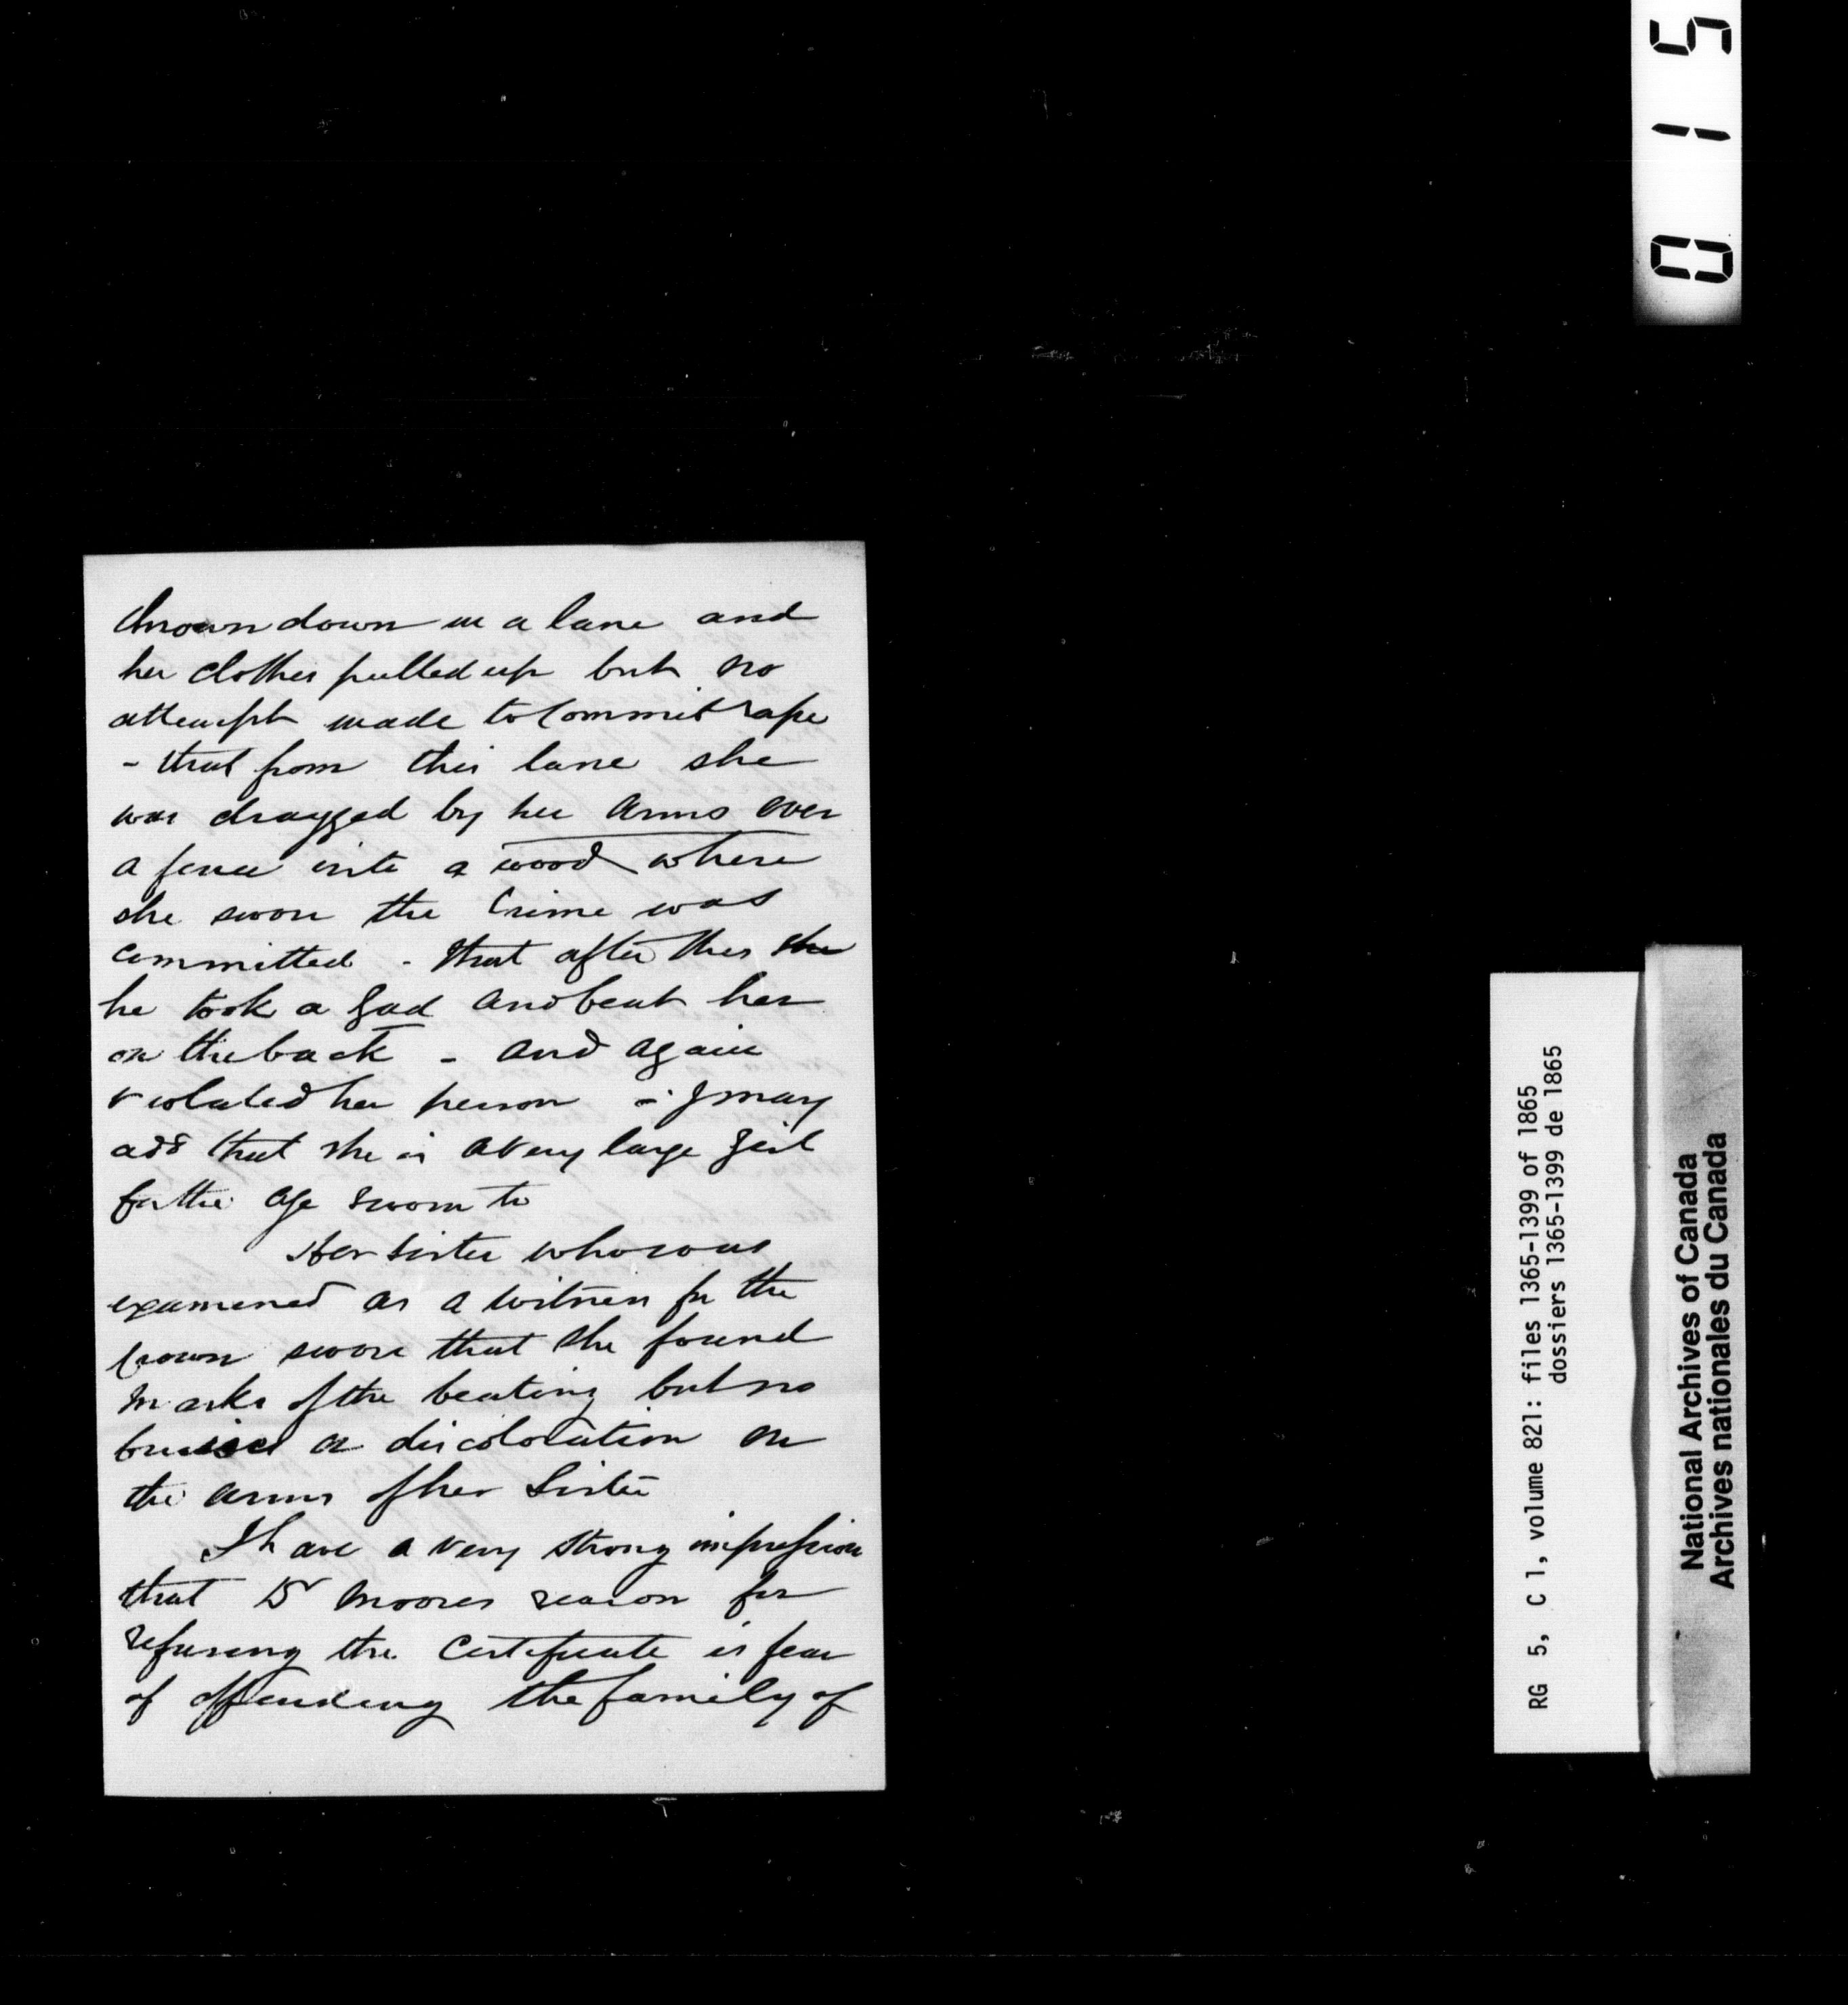 thrown down in a lane and
her clothes pulled up but no
attempt made to Commit rape
- that from this lane she
was dragged by her arms over
a fence into a wood where
she swore the Crime was
committed - that after this she
he took a Gad and beat her
on the back - and again
violated her person - I may
add that she is a very large girl
for the age sworn to
Her sister who was
examined as a witness for the
Crown swore that she found
marks of the beating but no
bruises or discoloration on
the arms of her Sister
I have a very strong impression
that Dr Moores reason for
refusing the Certificate is fear
of offending the family of
0 1 5
RG 5, C 1, volume 821: files 1365-1399 of 1865
dossiers 1365-1399 de 1865
National Archives of Canada
Archives nationales du Canada